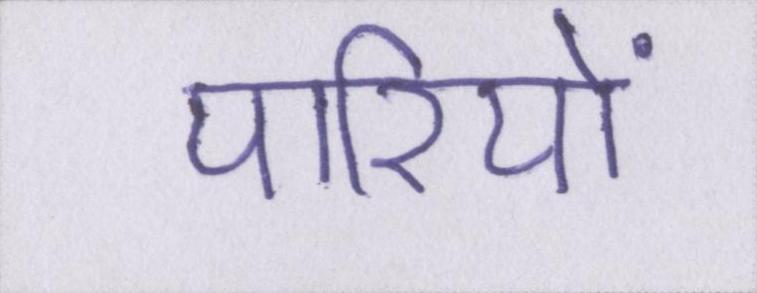 पारियों